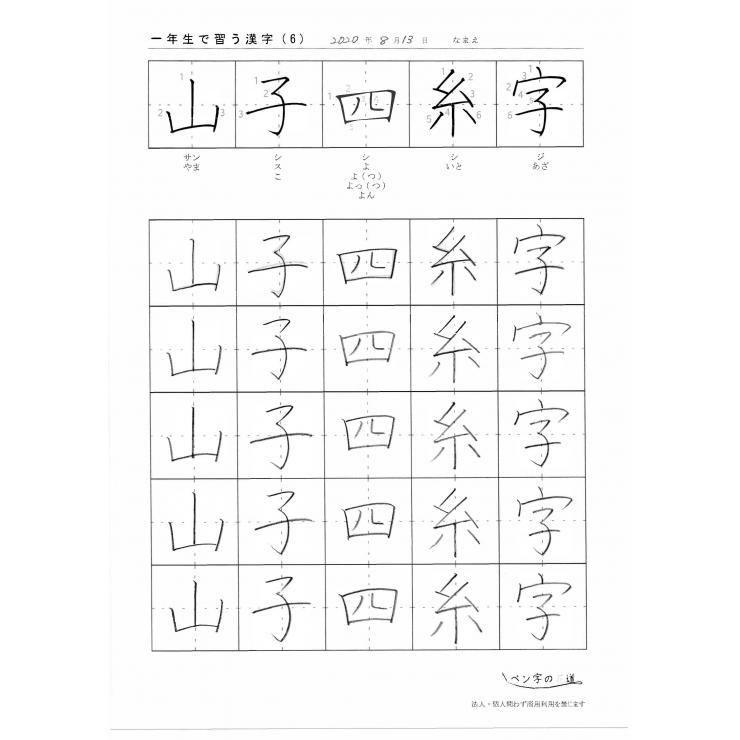 一年生で習う漢字（6） 2020年8月13日 なまえ
山 子 四 糸 字
サン シ シ シ ジ
やま ス よ いと あざ
こ よ(つ)
よっ(つ)
よん
山 子 四 糸 字
山 子 四 糸 字
山 子 四 糸 字
山 子 四 糸 字
山 子 四 糸 字
ペン字の道
法人・個人問わず商用利用を禁じます